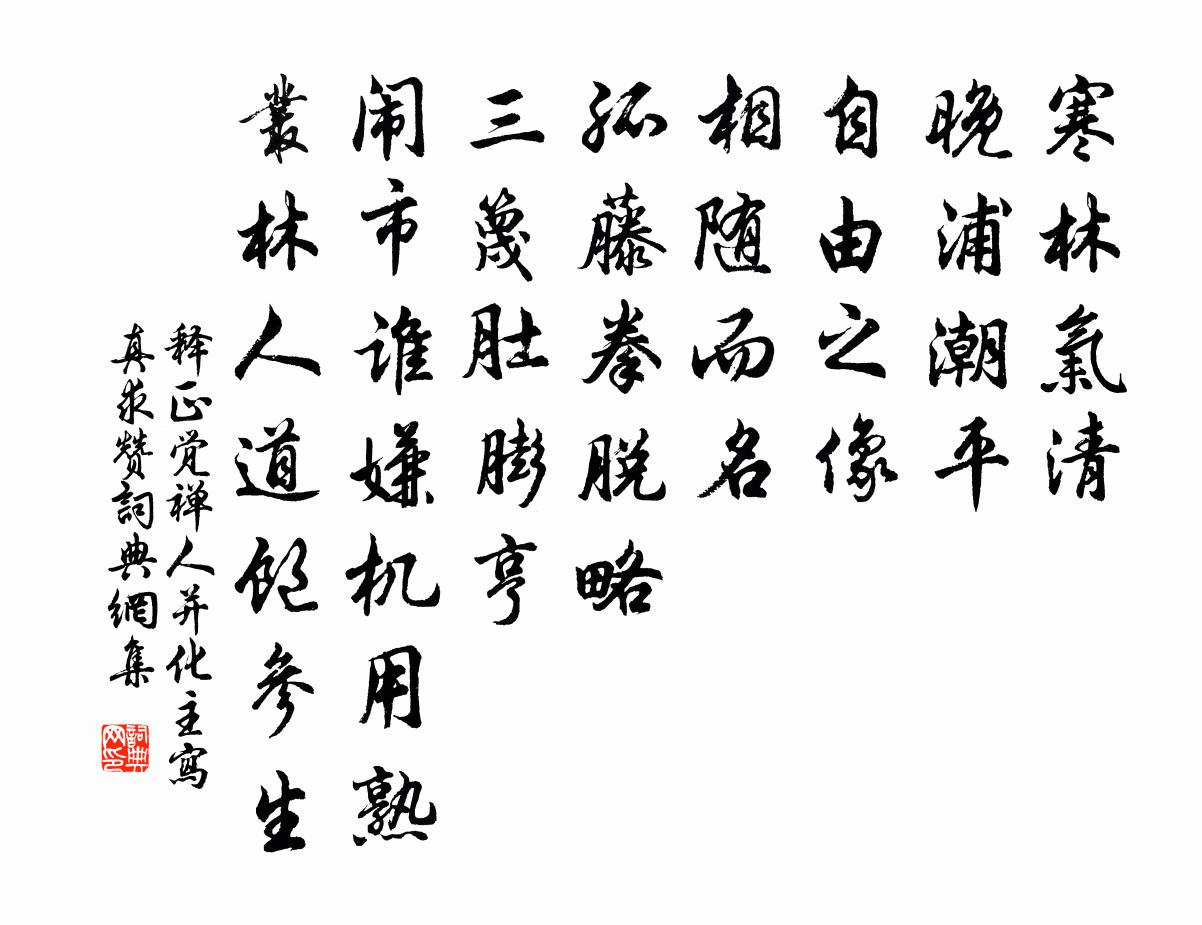 寒林氣清
晚浦潮平
自由之像
相随而名
孤藤拳脱略
三篾肚膨亨
闹市谁嫌机用熟
叢林人道饱參生
释正觉禅人并化主寫
真求赞詞典網集
詞典
网印